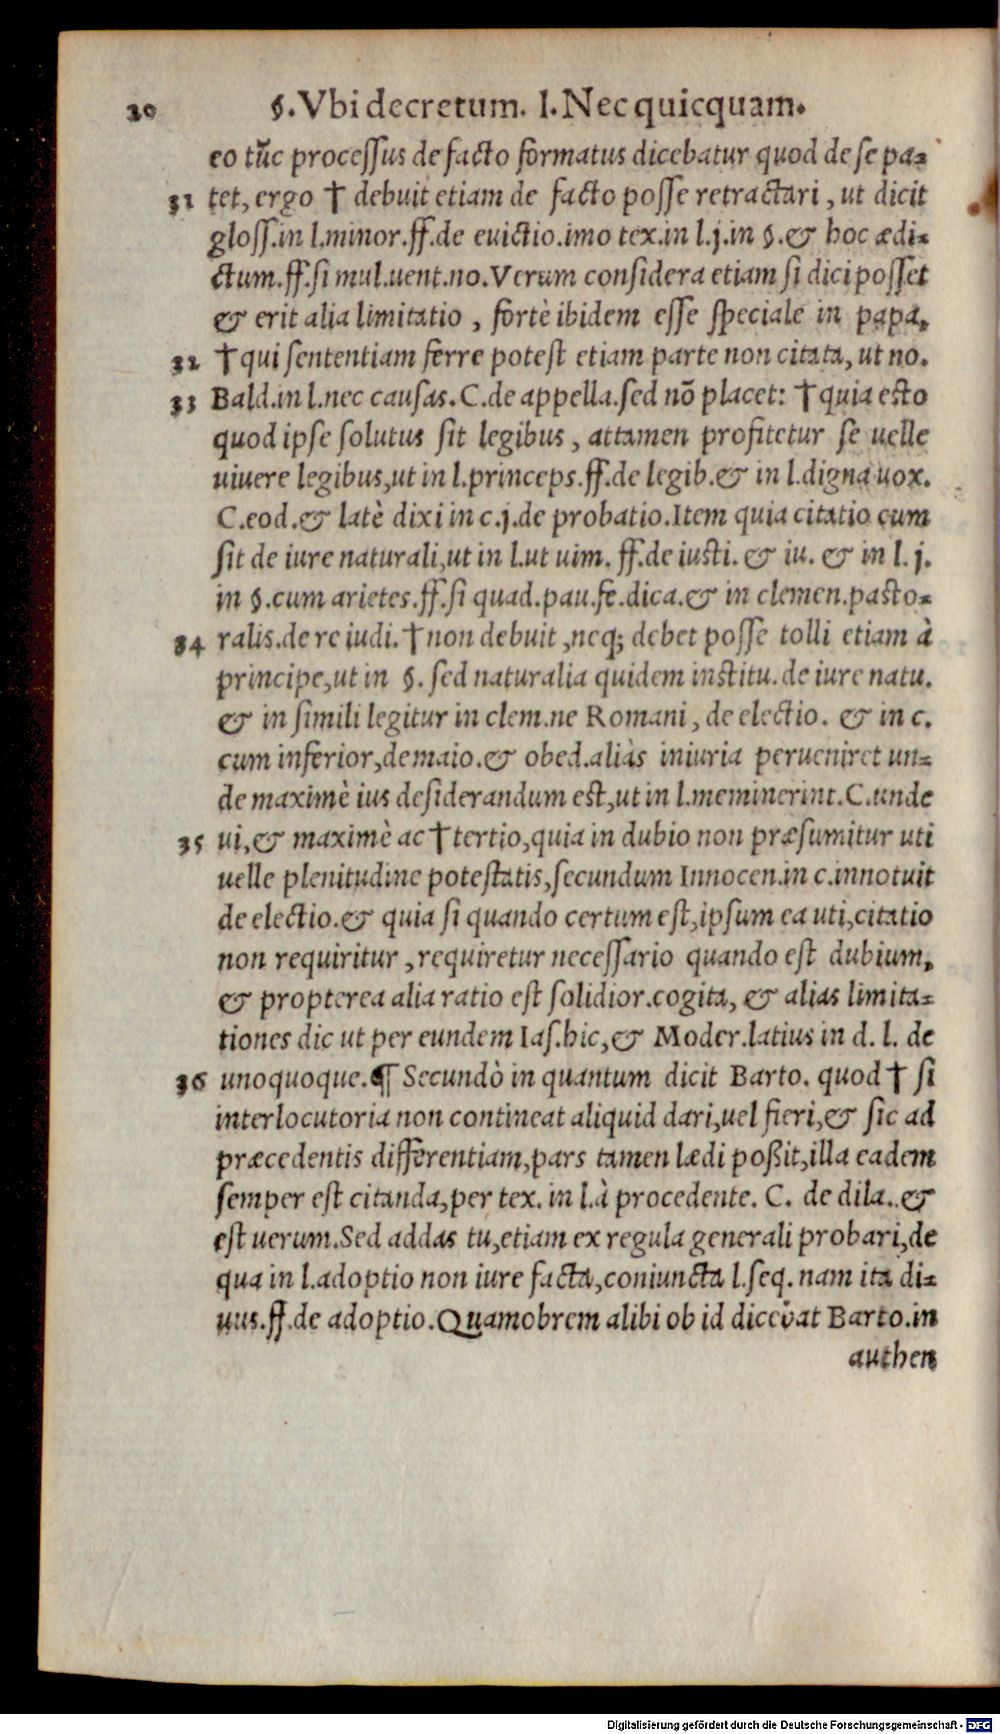 20 §. Vbi decretum. l. Nec quicquam.
eo tũc processus de facto formatus dicebatur quod de se pa-
31 tet, ergo † debuit etiam de facto posse retractari, ut dicit
gloss. in l. minor. ff. de evictio. imo tex. in l. j. in §. & hoc ædi-
ctum. ff. si mul. uent. no. Verum considera etiam si dici posset
& erit alia limitatio, fortè ibidem esse speciale in papa,
32 † qui sententiam ferre potest etiam parte non citata, ut no.
33 Bald. in l. nec causas. C. de appella. sed nõ placet: † quia esto
quod ipse solutus sit legibus, attamen profitetur se uelle
uiuere legibus, ut in l. princeps. ff. de legib. & in l. digna uox.
C. eod. & latè dixi in c. j. de probatio. Item quia citatio cum
sit de iure naturali, ut in l. ut uim. ff. de iusti. & iu. & in l. j.
in §. cum arietes. ff. si quad. pau. fe. dica. & in clemen. pasto-
34 ralis. de re iudi. † non debuit, neq; debet posse tolli etiam à
principe, ut in §. sed naturalia quidem institu. de iure natu.
& in simili legitur in clem. ne Romani, de electio. & in c.
cum inferior, de maio. & obed. aliàs iniuria perueniret un-
de maximè ius desiderandum est, ut in l. meminerint. C. unde
35 ui, & maximè ac † tertio, quia in dubio non præsumitur uti
uelle plenitudine potestatis, secundum Innocen. in c. innotuit
de electio. & quia si quando certum est, ipsum ea uti, citatio
non requiritur, requiretur necessario quando est dubium,
& propterea alia ratio est solidior. cogita, & alias limita-
tiones dic ut per eundem Ias. hic, & Moder. latius in d. l. de
36 unoquoque. ¶ Secundò in quantum dicit Barto. quod † si
interlocutoria non contineat aliquid dari, uel fieri, & sic ad
præcedentis differentiam, pars tamen lædi poßit, illa eadem
semper est citanda, per tex. in l. à procedente. C. de dila. & 
est uerum. Sed addas tu, etiam ex regula generali probari, de
qua in l. adoptio non iure facta, coniuncta l. seq. nam ita di-
uus. ff. de adoptio. Quamobrem alibi ob id dicebat Barto. in
authen
Digitalisierung gefördert durch die Deutsche Forschungsgemeinschaft - DFG